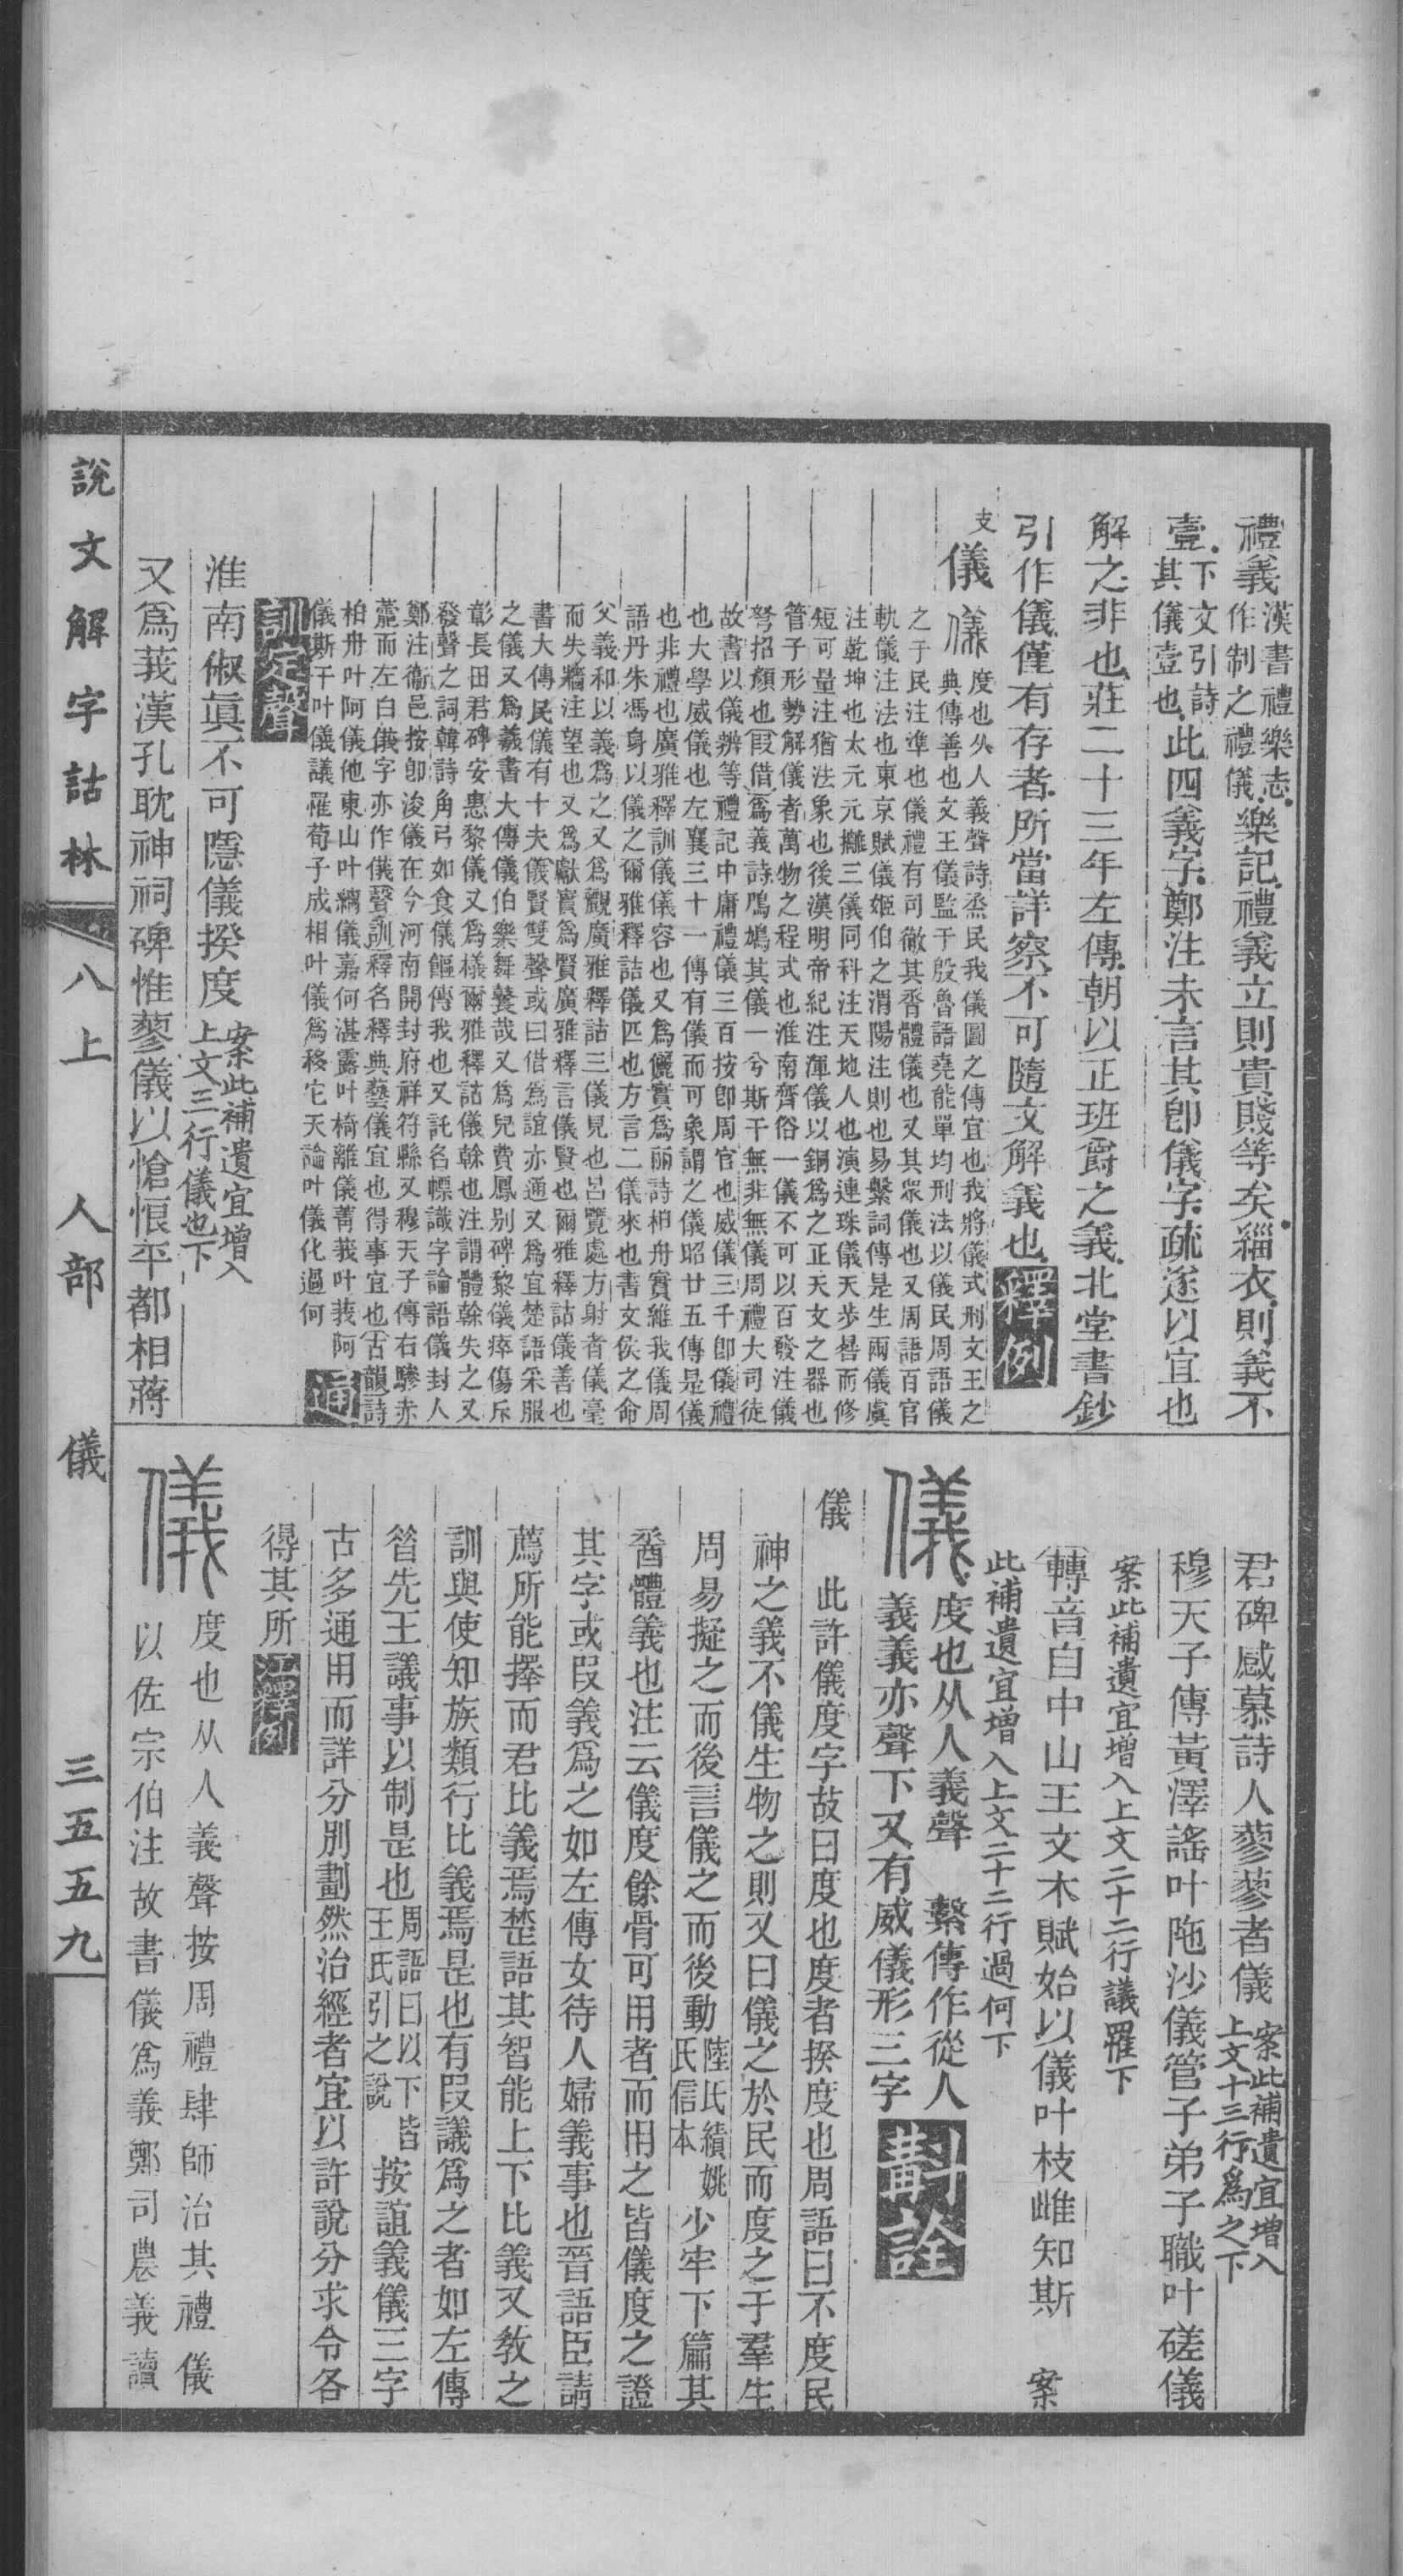 禮義漢書禮樂志作制之禮儀樂記禮義立則貴賤等矣緇衣則義不
壹下文引詩其儀壹也此四義字鄭注未言其卽儀字疏遂以宜也
解之非也莊二十三年左傳朝以正班爵之義北堂書鈔
引作儀僅有存者所當詳察不可隨文解義也釋例
支儀
度也从人義聲詩烝民我儀圖之傳宜也我將儀式刑文王之
典傳善也文王儀監于殷魯語堯能單均刑法以儀民周語儀
之于民注準也儀禮有司徹其脀體儀也又其眾儀也又周語百官
軌儀注法也東京賦儀姬伯之渭陽注則也易繫詞傳是生兩儀虞
注乾坤也太元元攡三儀同科注天地人也演連珠儀天步晷而修
短可量注猶法象也後漢明帝紀注渾儀以銅爲之正天文之器也
管子形勢解儀者萬物之程式也淮南齊俗一儀不可以百發注儀
弩招顏也假借爲義詩鳲鳩其儀一兮斯干無非無儀周禮大司徒
故書以儀辨等禮記中庸禮儀三百按卽周官也威儀三千卽儀禮
也大學威儀也左襄三十一傳有儀而可象謂之儀昭廿五傳是儀
也非禮也廣雅釋訓儀儀容也又爲儷實爲丽詩柏舟實維我儀周
語丹朱馮身以儀之爾雅釋詁儀匹也方言二儀來也書文侯之命
父義和以義爲之又爲觀廣雅釋詁三儀見也呂覽處方射者儀毫
而失牆注望也又爲獻實爲賢廣雅釋言儀賢也爾雅釋詁儀善也
書大傳民儀有十夫儀賢雙聲或曰借爲誼亦通又爲宜楚語采服
之儀又爲羲書大傳儀伯樂舞鼚哉又爲兒費鳳別碑黎儀瘁傷斥
彰長田君碑安惠黎儀又爲樣爾雅釋詁儀榦也注謂體榦失之又
發聲之詞韓詩角弓如食儀饇傳我也又託名幖識字論語儀封人
鄭注衞邑按卽浚儀在今河南開封府祥符縣又穆天子傳右驂赤
蘎而左白儀字亦作㕒聲訓釋名釋典藝儀宜也得事宜也古韻詩
柏舟叶阿儀他東山叶縭儀嘉何湛露叶椅離儀菁莪叶莪阿
儀斯干叶儀議罹荀子成相叶儀爲移它天論叶儀化過何通
訓定聲
淮南俶眞不可隱儀揆度案此補遺宜增入上文三行儀也下
又爲莪漢孔耽神祠碑惟蓼儀以愴恨平都相蔣
君碑感慕詩人蓼蓼者儀案此補遺宜增入上文十三行爲之下
穆天子傳黃澤謠叶陁沙儀管子弟子職叶磋儀
案此補遺宜增入上文二十二行議罹下
轉音自中山王文木賦始以儀叶枝雌知斯案
此補遺宜增入上文二十二行過何下
儀度也从人義聲 繫傳作從人
義義亦聲下又有威儀形三字斠詮
儀 此許儀度字故曰度也度者揆度也周語曰不度民
神之義不儀生物之則又曰儀之於民而度之于羣生
周易擬之而後言儀之而後動陸氏績姚氏信本少牢下篇其
脀體義也注云儀度餘骨可用者而用之皆儀度之證
其字或叚義爲之如左傳女待人婦義事也晉語臣請
薦所能擇而君比義焉楚語其智能上下比義又敎之
訓與使知族類行比義焉是也有叚議爲之者如左傳
昝先王議事以制是也周語曰以下皆王氏引之說按誼義儀三字
古多通用而詳分別劃然治經者宜以許說分求令各
得其所江釋例
儀度也从人義聲按周禮肆師治其禮儀
以佐宗伯注故書儀爲義鄭司農義讀
說文解字詁林 八上 人部 儀 三五五九